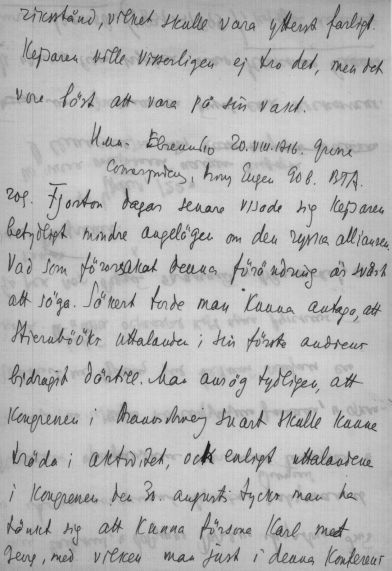 riksstånd, vilket skulle vara ytterst farligt.
Kejsaren ville visserligen ej tro det, men det
vore bäst att vara på sin vakt.
20.VIII.1716.
Prinz Eugen 90 b. BTA.
Fjorton dagar senare visade sig Kejsaren
betydligt mindre angelägen om den ryska alliansen.
Vad som förorsakat denna förändring är svårt
att säga. Säkert torde man kunna antaga, att
Stiernhööks uttalanden i sin första audiens
bidragit därtill. Man ansåg tydligen, att
Kongressen i Braunschweig snart skulle kunna
träda i aktivitet, och enligt uttalandena
i Kongressen den 30. augusti tycks man ha
tänkt sig att kunna försona Karl med
Georg, med vilken man just i denna Konferens